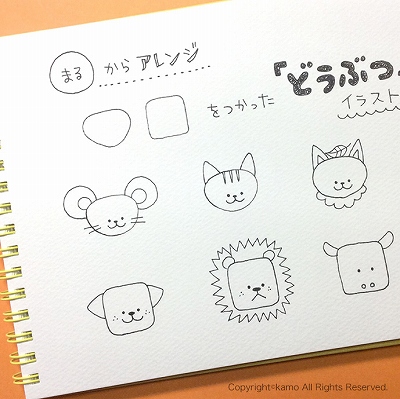 まる からアレンジ
をつかった「どうぶつ」
イラスト
Copyright©kamo All Rights Reserved.